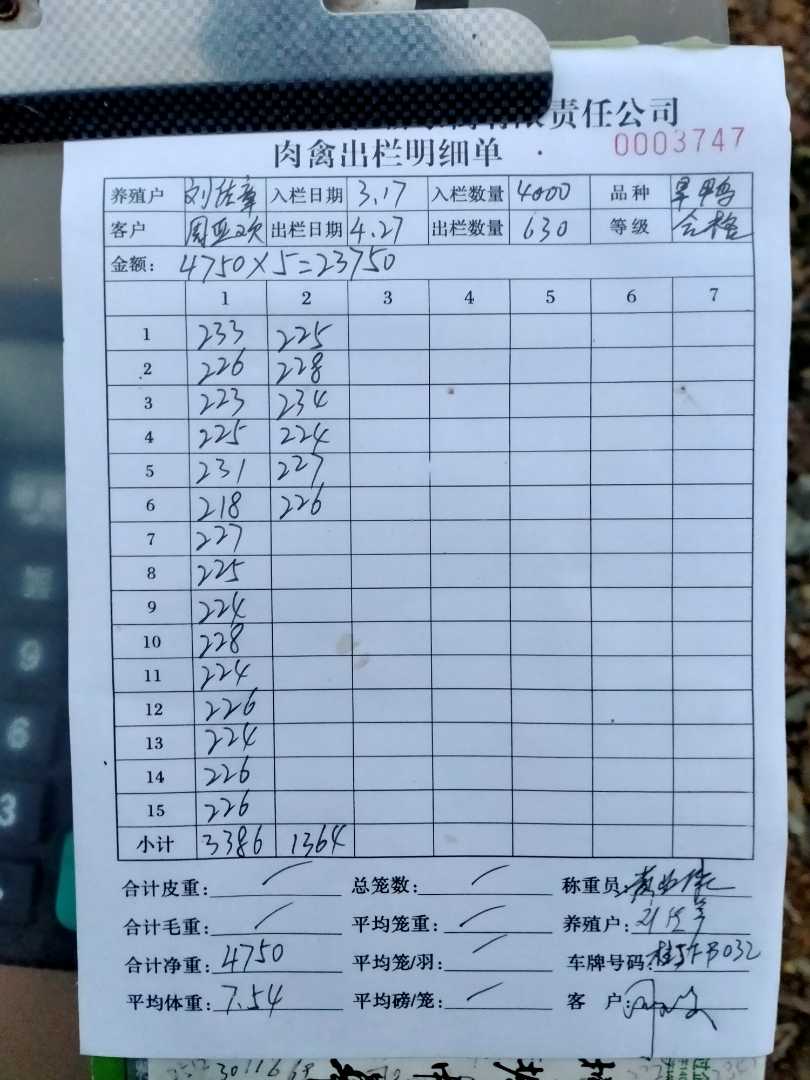 责任公司
肉禽出栏明细单
0003747
养殖户 刘佐章 入栏日期 3.17 入栏数量 4000 品种 旱鸭
客户 周亚次 出栏日期 4.27 出栏数量 630 等级 合格
金额: 4750×5=23750
1 2 3 4 5 6 7
1 233 225
2 226 228
3 223 234
4 225 224
5 231 227
6 218 226
7 227
8 225
9 224
10 228
11 224
12 226
13 224
14 226
15 226
小计 3386 1364
合计皮重: / 总笼数: / 称重员:
合计毛重: / 平均笼重: / 养殖户:
合计净重: 4750 平均笼/羽: / 车牌号码:
平均体重: 7.54 平均磅/笼: / 客 户:
9
6
3